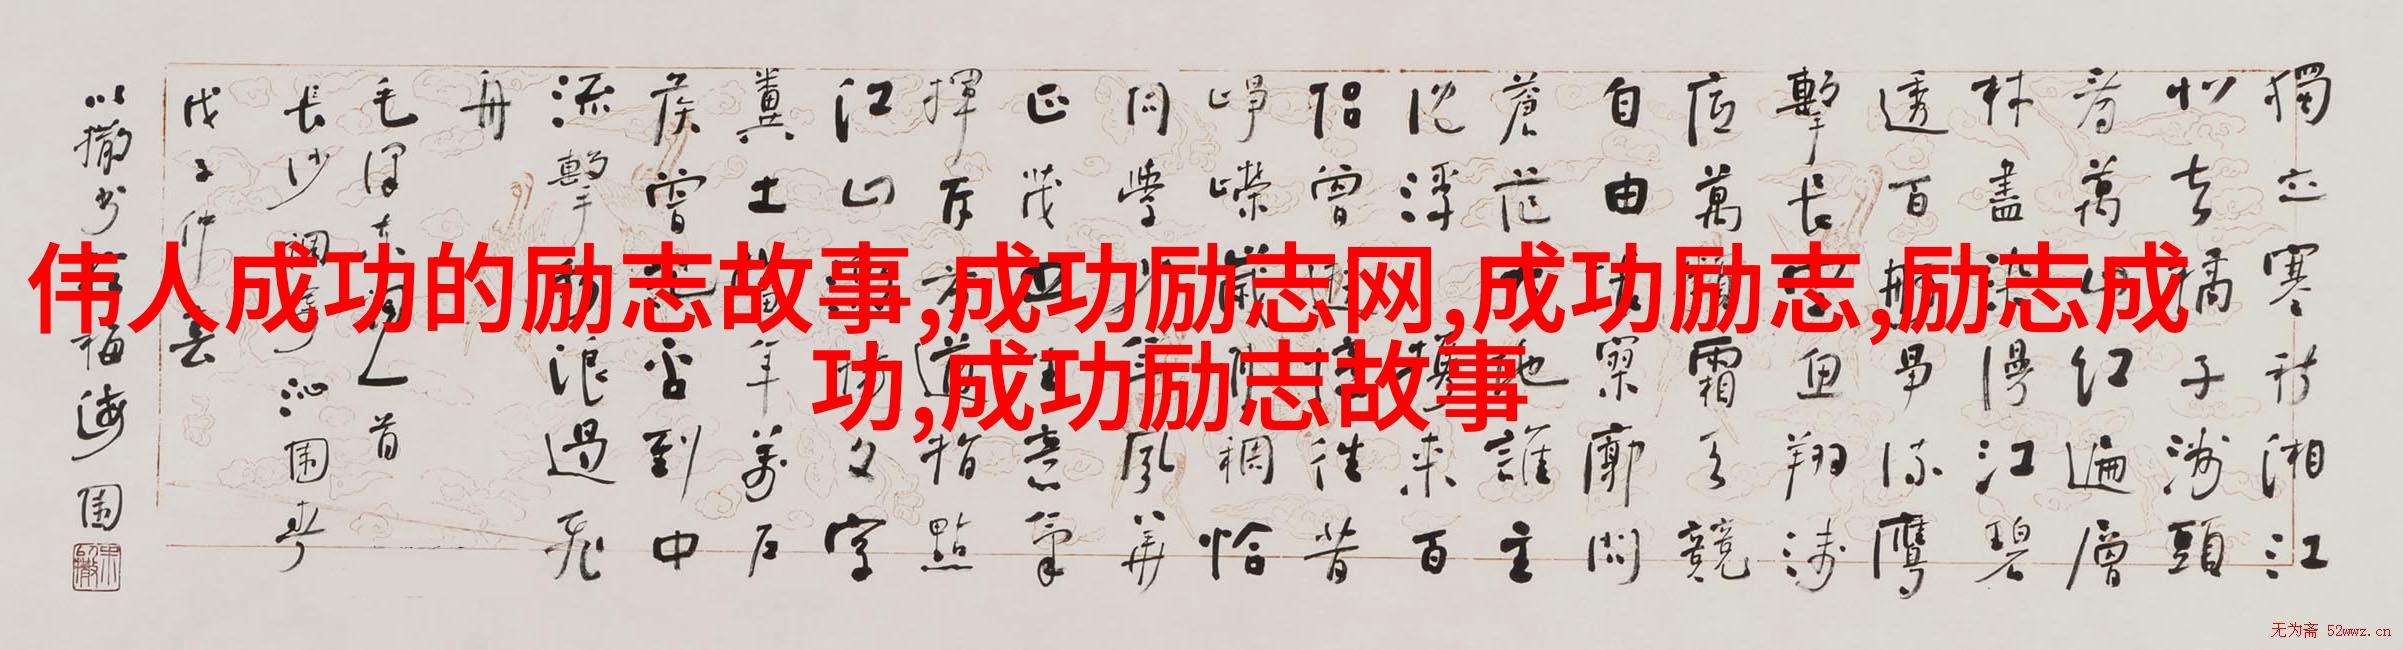 伟人成功的励志故事,成功励志网,成功励志,励志成
功,成功励志故事
獨立寒秋湘江
北去橘子洲頭
看萬山紅遍層
林盡染漫江碧
透百舸爭流鷹
擊長空魚翔淺
底萬類霜天競
自由悵寥廓問
蒼茫大地誰主
沈浮攜來百
侶曾遊憶往昔
崢嶸歲月稠恰
同學少年風華
正茂書生意氣
揮斥方遒指點
江山激揚文字
糞土當年萬戶
侯曾記否到中
流擊水浪遏飛
舟
毛澤東詞一首
長沙調寄沁園春
戊子仲冬
以撒書於福海園
无为斋 52wwz.cn